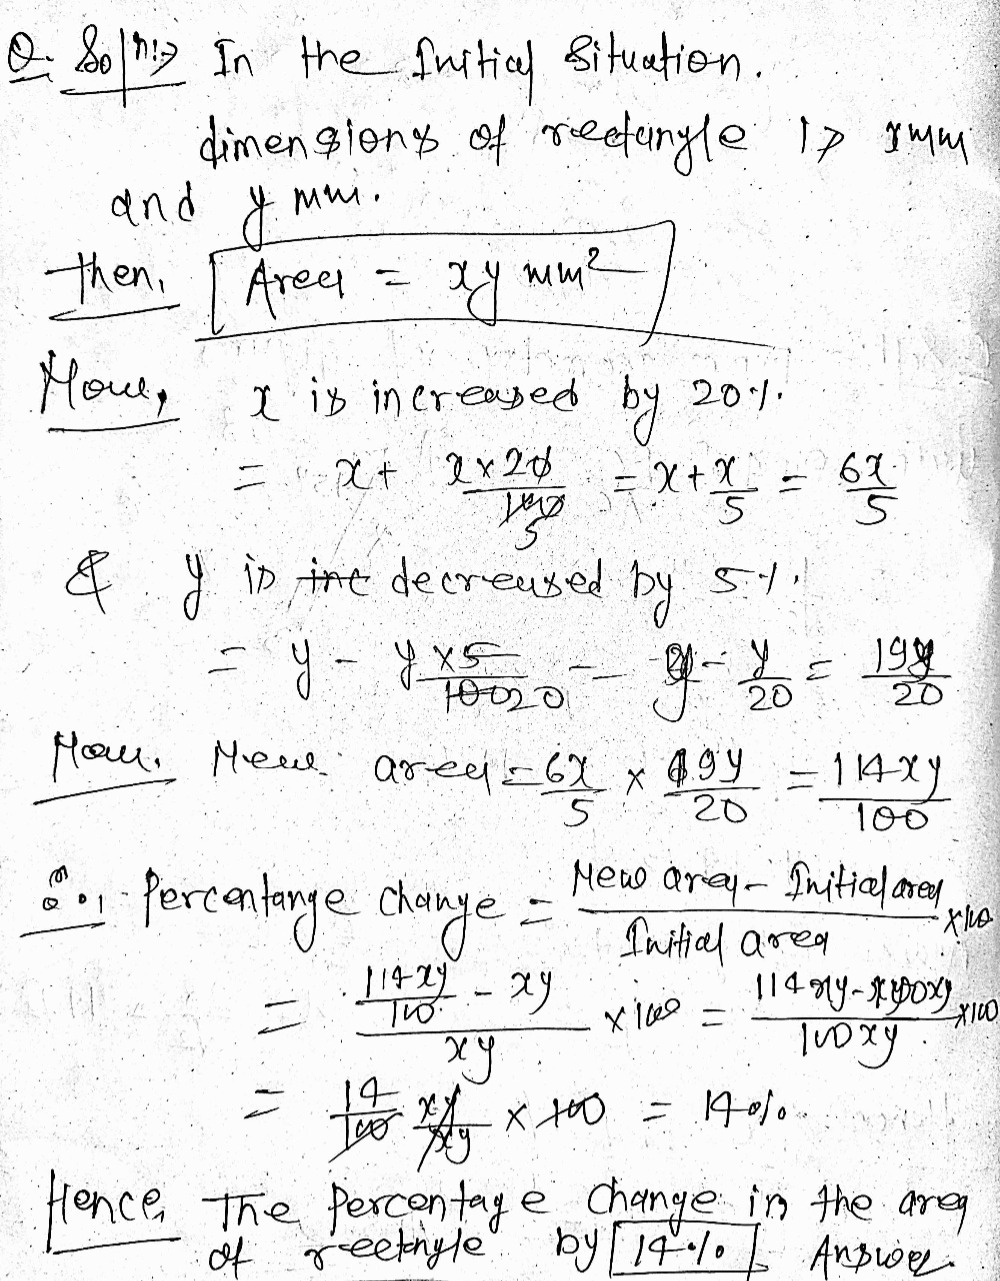 Q. Soln:⇒ In the Initial Situation.
dimensions of rectangle is xmm
and y mm.
then, Area = xy mm²
Now, x is increased by 20%.
= x + x×20/100 5 = x + x/5 = 6x/5
& y is inc decreased by 5%.
= y - y×5/100 20 = y - y/20 = 19y/20
Now. New area = 6x/5 × 19y/20 = 114xy/100
∴ Percentange change = New area - Initial area/Initial area ×100
= 114xy/100 - xy/xy ×100 = 114xy - 100xy/100xy ×100
= 14/100 xy/xy × 100 = 14%
Hence, The Percentage change in the area
of reetengle by 14% Answer.